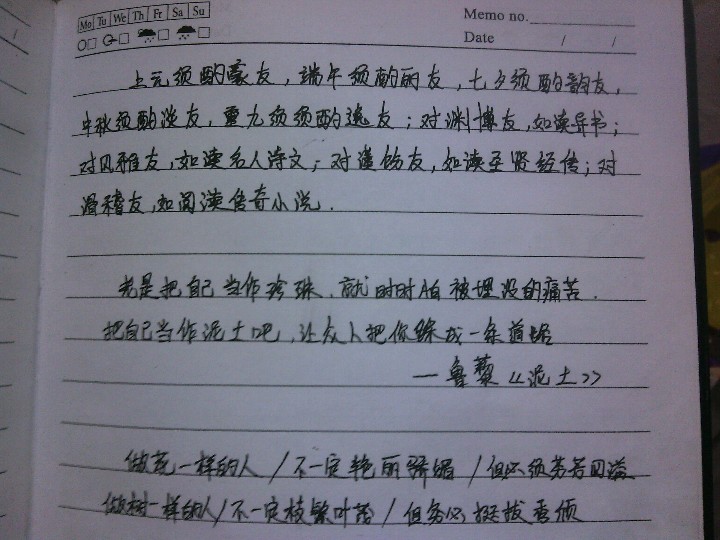 Mo Tu We Th Fr Sa Su
Memo no.
Date / /
上元须酌豪友，端午须酌丽友，七夕须酌韵友，
中秋须酌淡友，重九须须酌逸友；对渊博友，如读异书；
对风雅友，如读名人诗文；对谨饬友，如读圣贤经传；对
滑稽友，如阅读传奇小说．
老是把自己当作珍珠，就时时怕被埋没的痛苦．
把自己当作泥土吧，让众人把你踩成一条道路
— 鲁藜《泥土》
做花一样的人／不一定艳丽娇媚／但必须芳芳四溢
做树一样的人／不一定枝繁叶茂／但务必挺拔秀颀